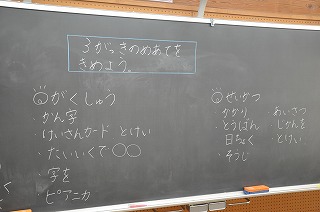 3がっきのめあてを
きめよう。
◎がくしゅう
・かん字
・けいさんカード とけい
・たいいくで○○
・字を
・ピアニカ
◎せいかつ
・かかり
・とうばん
・日ちょく
・そうじ
・あいさつ
・じかんを
・とけい